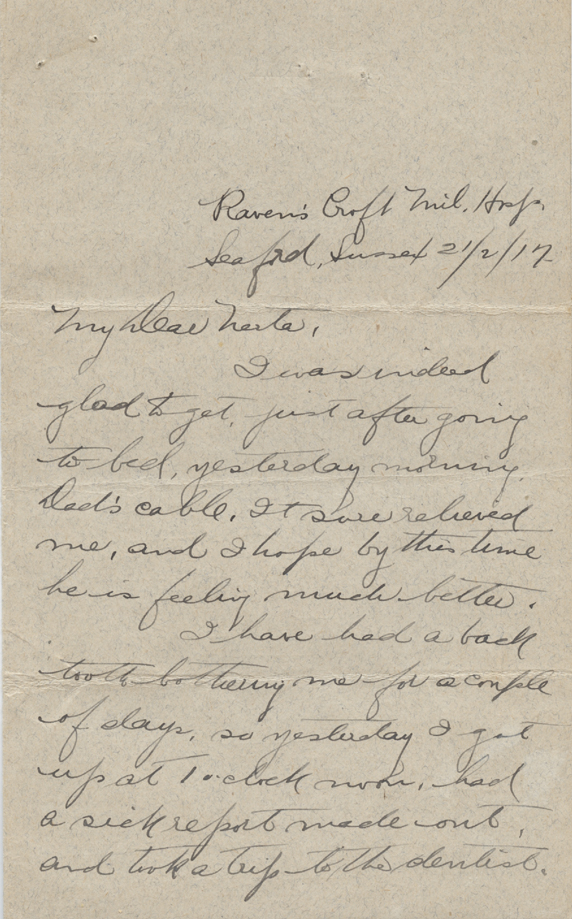 Raven's Croft Mil. Hosp.
Seaford, Sussex 21/2/17
My Dear Nerta,
I was indeed
glad to get, just after going
to bed, yesterday morning,
Dad's cable. It sure relieved
me, and I hope by this time
he is feeling much better.
I have had a back
tooth bothering me for a couple
of days, so yesterday I got
up at 1 o'clock noon, had
a sick report made out,
and took a trip to the dentist.